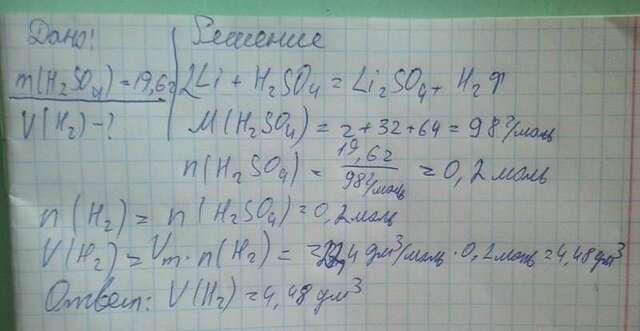 Дано: Решение
m(H₂SO₄) = 19,6г 2Li + H₂SO₄ = Li₂SO₄ + H₂↑
V(H₂) - ? M(H₂SO₄) = 2+32+64 = 98 г/моль
n(H₂SO₄) = 19,6г / 98 г/моль = 0,2 моль
n(H₂) = n(H₂SO₄) = 0,2 моль
V(H₂) = Vm · n(H₂) = 22,4 дм³/моль · 0,2 моль = 4,48 дм³
Ответ: V(H₂) = 4,48 дм³